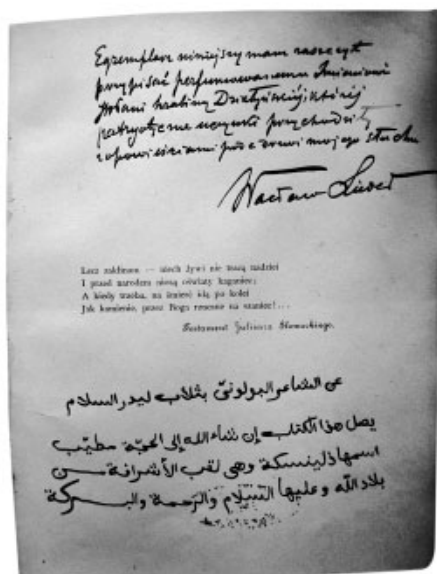 Egzemplarz niniejszy mam zaszczyt
przypisać perfumowanemu Imieniowi
hrabiny Działyńskiej, której
patryotyczne uczynki przychodzą
opowieściami pode drzwi mojego słuchu
Wacław Lieder
Lecz zaklinam — niech żywi nie tracą nadziei
I przed narodem niosą oświaty kaganiec;
A kiedy trzeba, na śmierć idą po kolei
Jak kamienie, przez Boga rzucane na szaniec!...
Testament Juliusza Słowackiego.
عن الشاعر البولونيّ ليدر السلام
يصل هذا الكتاب إن شاء الله إلى مطيّب
اسمها وهى لقب الأشرافة من
بلاد الله وعليها السّلام والرّحمة والبركة